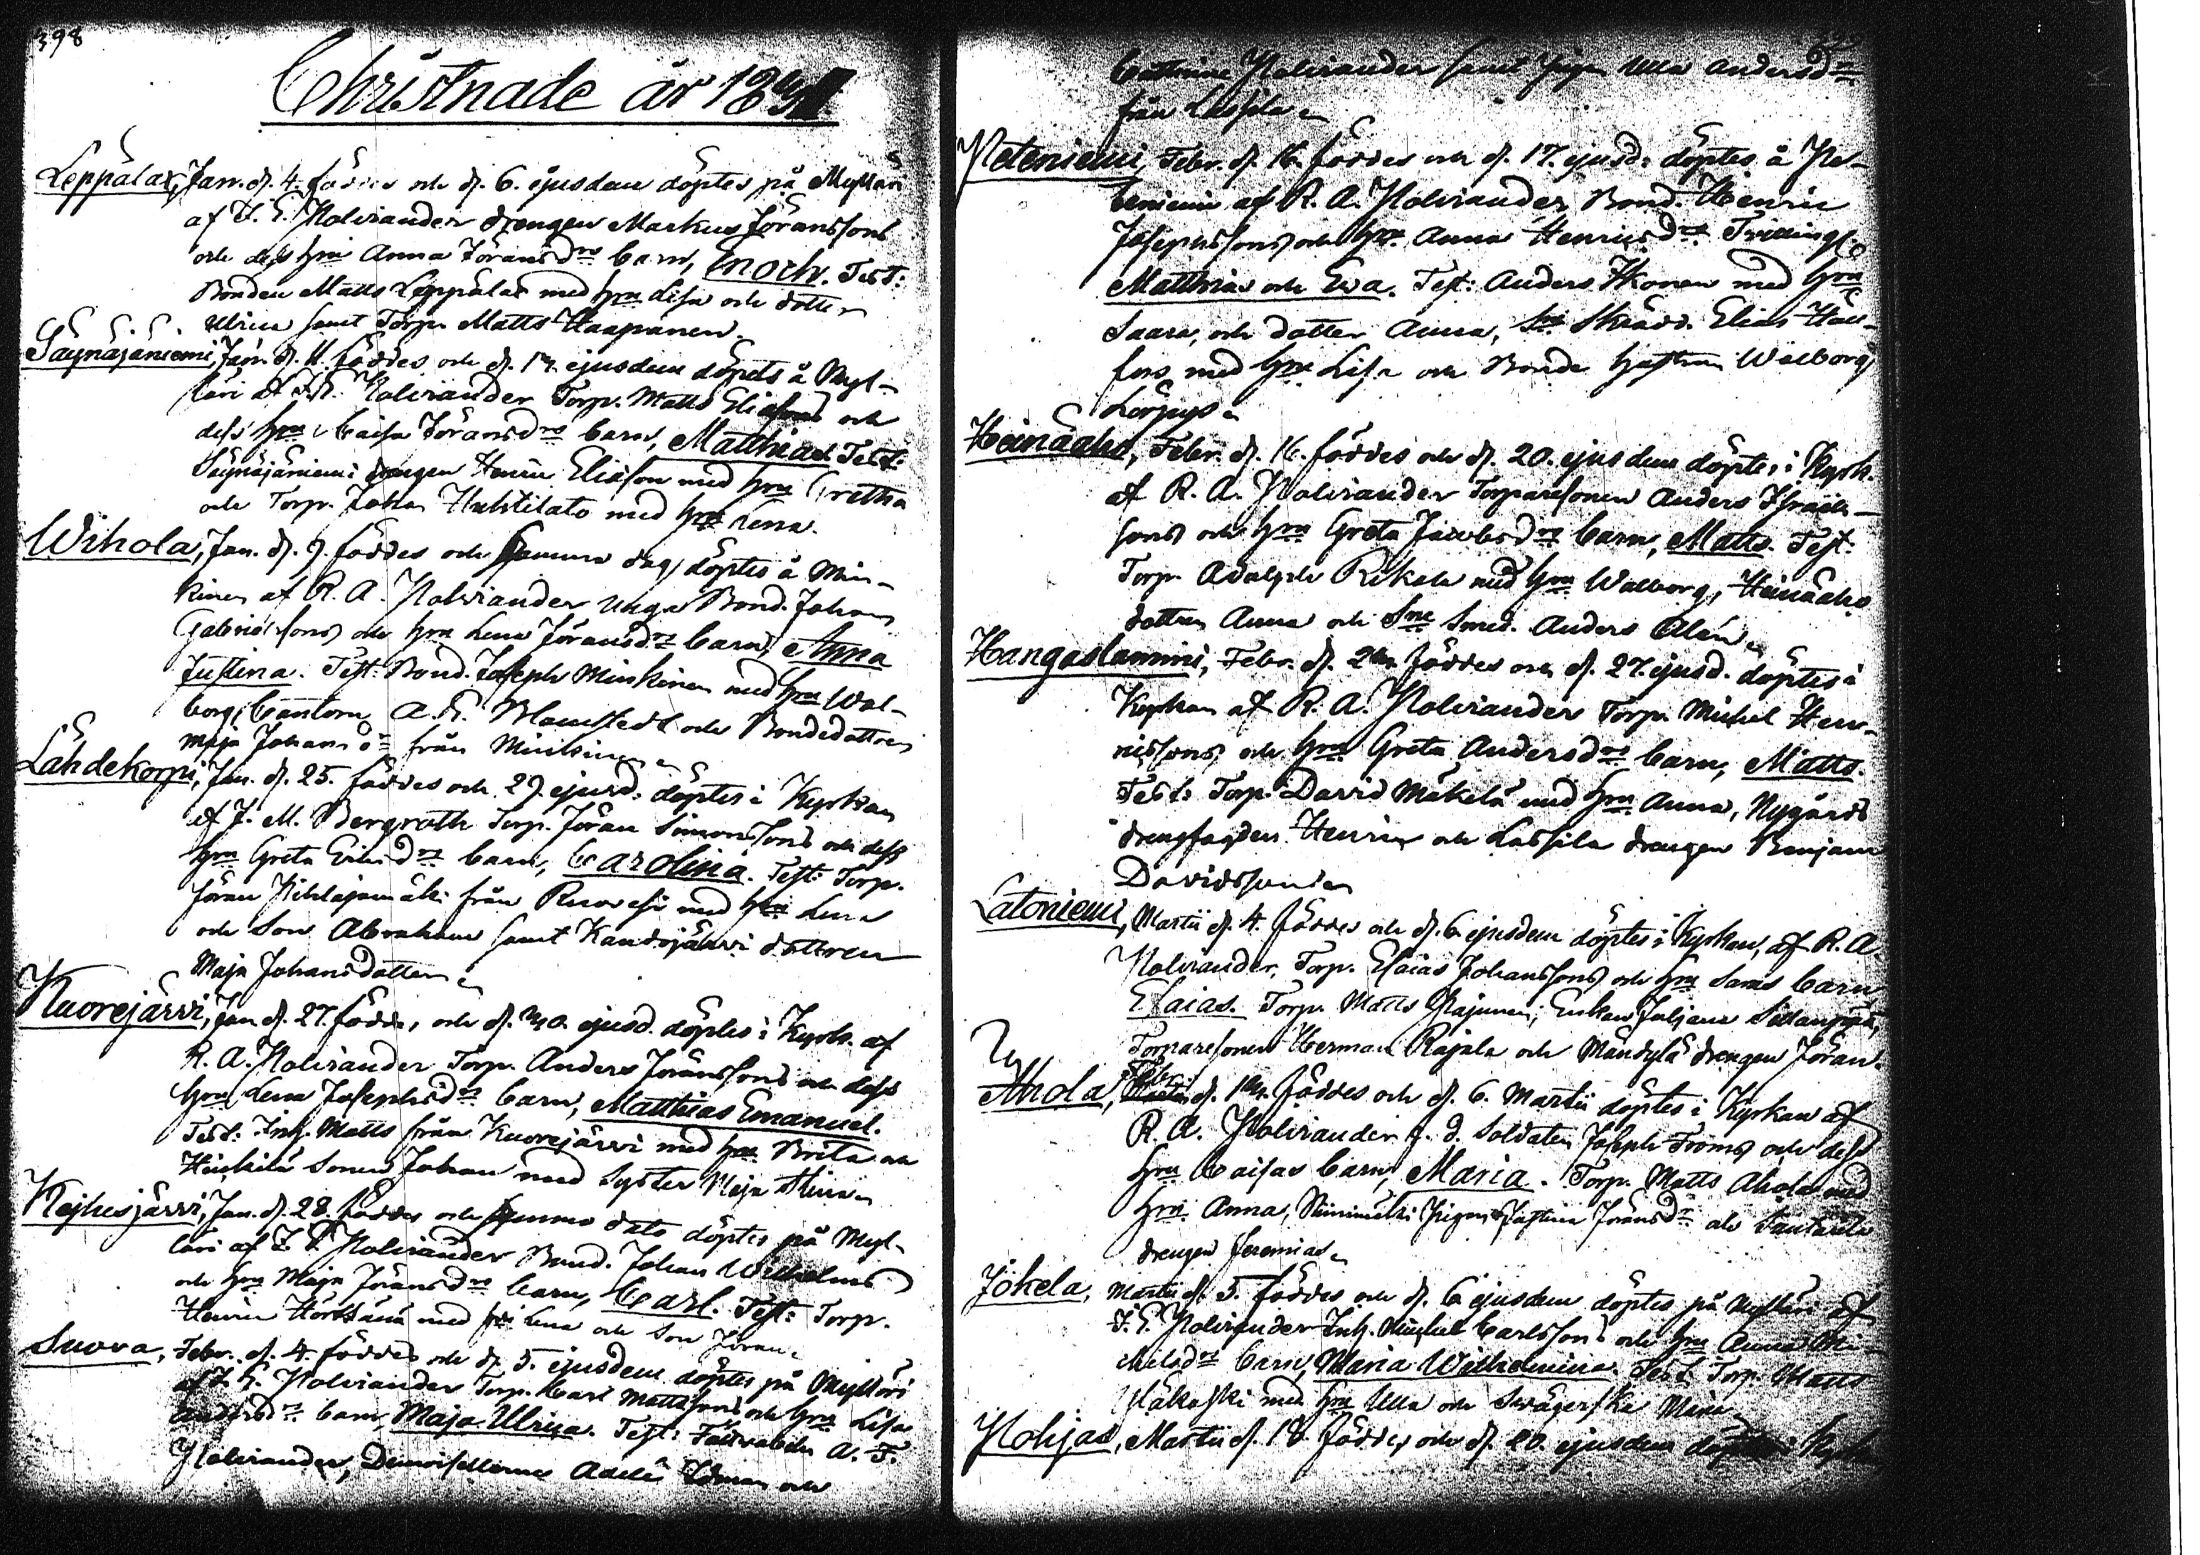 398
Christnade år 1831
Leppälax, Jan. d. 4. föddes och d. 6. ejusdem döptes på Mylläri
af J. E. Polviander drengen Markus Jöransons
och dess hru Anna Jöransdrs barn, Enoch. Test:
Bonden Matts Leppälax med hru Lisa och dotter
Ulrica samt Torp. Matts Haapanen.
Säynäjäniemi, Jan. d. 11. föddes och d. ejusdem döptes å Myl-
läri af J. E. Polviander Torp. Matts Eliasons och
dess hru Caisa Jöransdrs barn, Matthias Test:
Säynäjäniemi drengen Henric Eliason med hru Gretha
och Torp. Johan Huhtilato med hru Lena.
Wihola, Jan. d. 9. föddes och samma dag döptes å Min-
kinen af R. A. Polviander unga Bond. Johan
Gabrielssons och hru Lena Jöransdrs barn, Anna
Justina. Test: Bond. Joseph Minkinen med hru Wal-
borg, Cantorn A. E. Blomstedt och Bondedottren
Maja Johansdr från Minkinen
Lähdekorpi, Jan. d. 25. föddes och 29. ejusd: döptes i Kyrkan
af J. M. Bergroth Torp. Jöran Simonssons och dess
hru Greta Ericsdrs barn, Carolina. Test: Torp.
Jöran Pihlajamäki från Ruovesi med hru Lena
och Son Abraham samt Kandojärvi dottren
Maja Johansdotter
Kuorejärvi, Jan d. 27. födde, och d. 30. ejusd. döptes i Kyrk. af
R. A. Polviander Torp. Anders Jöranssons och dess
hru Lena Josephsdrs barn, Matthias Emanuel.
Test: Inh. Matts från Kuorejärvi med hru Brita och
sonen Johan med Syster Maja Stina
Kejhesjärvi, Jan. d. 28. föddes och samma dato döptes på Myl-
läri af J. E. Polviander Bond. Johan Wilhelms
och hru Maja Jöransdrs barn, Carl. Test: Torp.
Henric med hru Lena och Son Jöran
Suova, Febr. d. 4. föddes och d. 5. ejusdem döptes på Mylläri
af J. E. Polviander Torp. Carl Mattssons och hru Lisa
Andersdrs barn, Maja Ulrica. Test: A. F.
Polviander, Demoisellerne Adele och
Catherine Polviander samt pigan Ulla Andersdr
från Lassila
Peteniemi, Febr. d. 16. föddes och d. 17. ejusd: döptes å Pe-
teniemi af R. A. Polviander, Bond. Henric
Josephssons och hru Anna Henricsdrs Tvillingar
Matthias och Ewa. Test: Anders Ikonen med hru
Saara, och dotter Anna, Skrädd. Elias Häll-
fors med hru Lisa och Bonde hustrun Walborg
Heinäaho, Febr. d. 16. föddes och d. 20. ejusdem döptes i Kyrk.
af R. A. Polviander Torparesonen Anders Israels-
sons och hru Greta Jacobsdrs barn, Matts. Test:
Torp. Adolph Rikala med hru Walborg, Heinäaho
dottren Anna och Smed. Anders Alén
Hangaslammi, Febr. d. 24. föddes och d. 27. ejusd. döptes i
Kyrkan af R. A. Polviander Torp. Michel Hen-
ricssons och hru Greta Andersdrs barn, Matts.
Test: Torp. David Mäkelä med hru Anna, Nygårds
drengen Henric och Lassila drengen Benjam
Davidsson
Latoniemi, Martii d. 4. föddes och d. 6 ejusdem döptes i Kyrkan, af R. A.
Polviander, Torp. Esaias Johanssons och hru Saras barn
Esaias. Torp. Matts Enkan Juliana Sillanpää,
Torparesonen Herman Rajala och Mändylä drengen Jöran.
Ahola, Febr. d. 14. föddes och d. 6. Martii döptes i Kyrkan af
R. A. Polviander f. d. Soldaten Joseph Froms och dess
hru Caisas barn, Maria. Torp. Matts Ahola med
hru Anna, Niinimäki pigan Justina Jöransdr och
drengen Jeremias
Jokela, Martii d. 5. föddes och d. 6 ejusdem döptes på Mylläri af
J. E. Polviander Inh. Michel Carlssons och hru Anna Mi-
chelsdrs barn, Maria Wilhelmina. Test: Torp. Matts
Mäkaski med hru Ulla och Swägerska Maria
Pohjas, Martii d. 18. föddes och d. 20. ejusdem döptes i Kyrkan